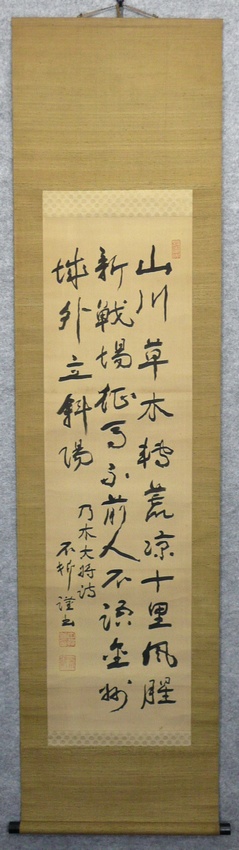 山川草木轉荒凉十里風腥
新戦場征馬不前人不語金州
城外立斜陽
乃木大将詩
不折謹書